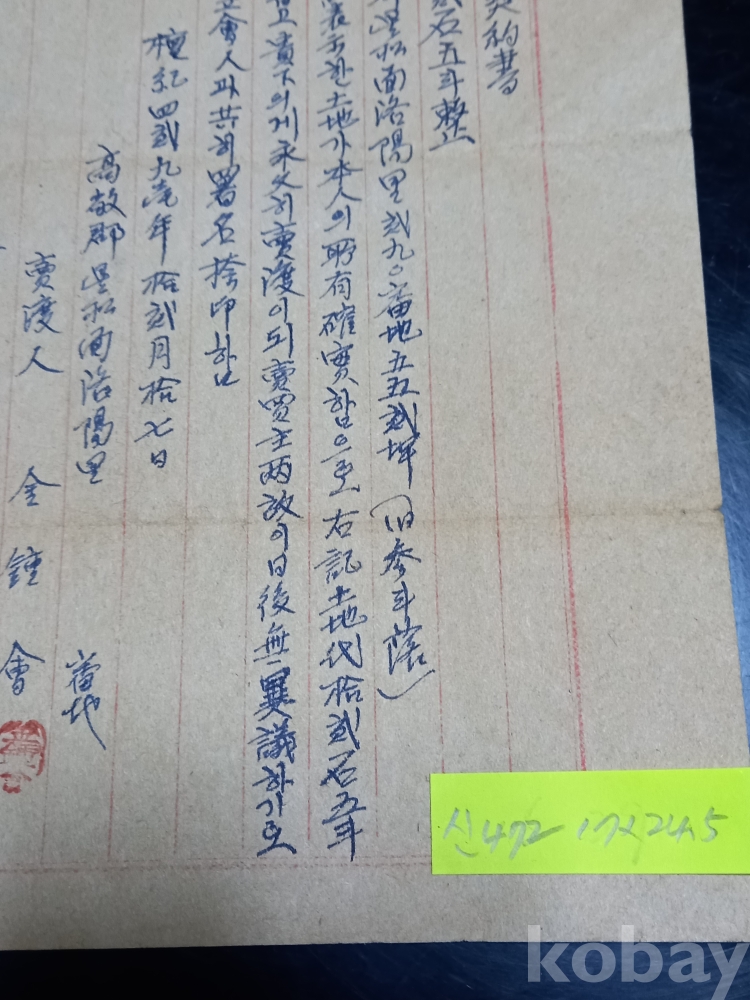 契約書
貳石五斗整
星松面洛陽里貳九〇番地五五貳坪(旧參斗落)
表示한土地가本人의所有確實함으로右記土地代拾貳石五斗
貴下의게永久히賣渡이되賣買主両放이日後無異議하기로
立會人과共히署名捺印함
檀紀四貳九壹年拾貳月拾七日
高敞郡星松面洛陽里 番地
賣渡人 金鍾會
신472 17X24.5
kobay